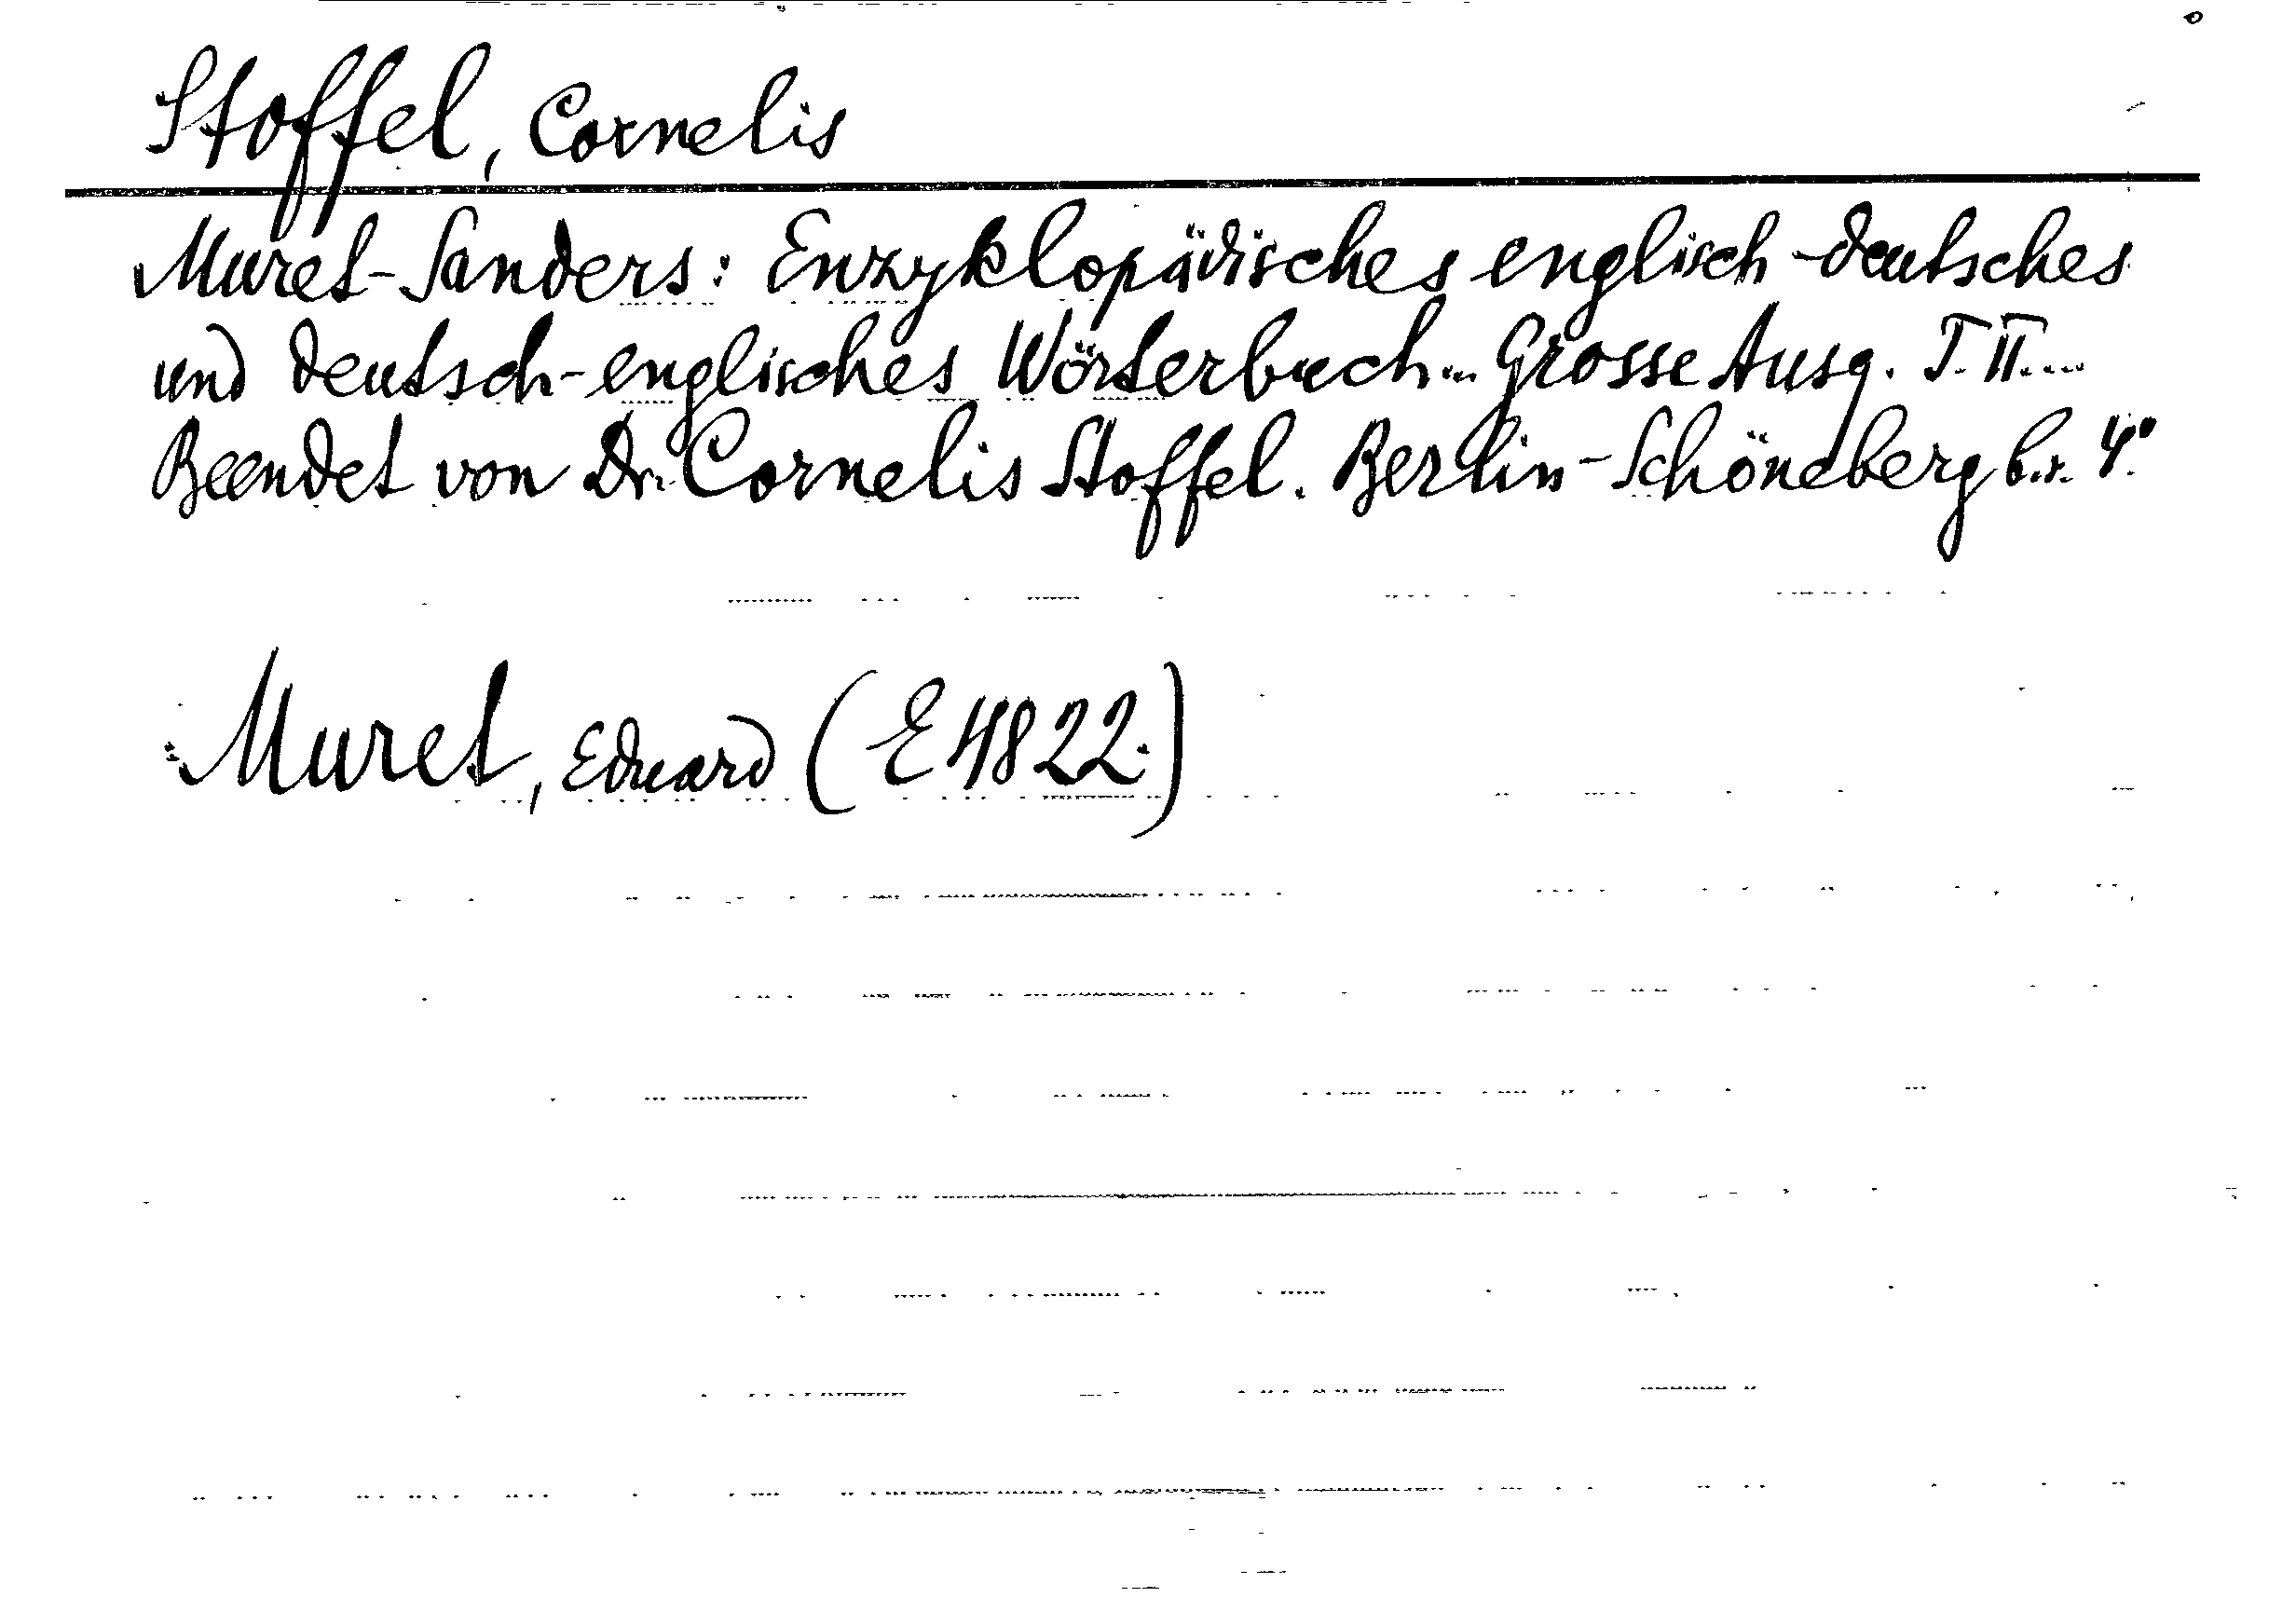 Stoffel, Cornelis
Muret-Sanders: Enzyklopädisches englisch-deutsches
und deutsch-englisches Wörterbuch... Grosse Ausg. T. II....
Beendet von Dr. Cornelis Stoffel. Berlin-Schöneberg 4°.
Muret, Eduard (E 4822.)